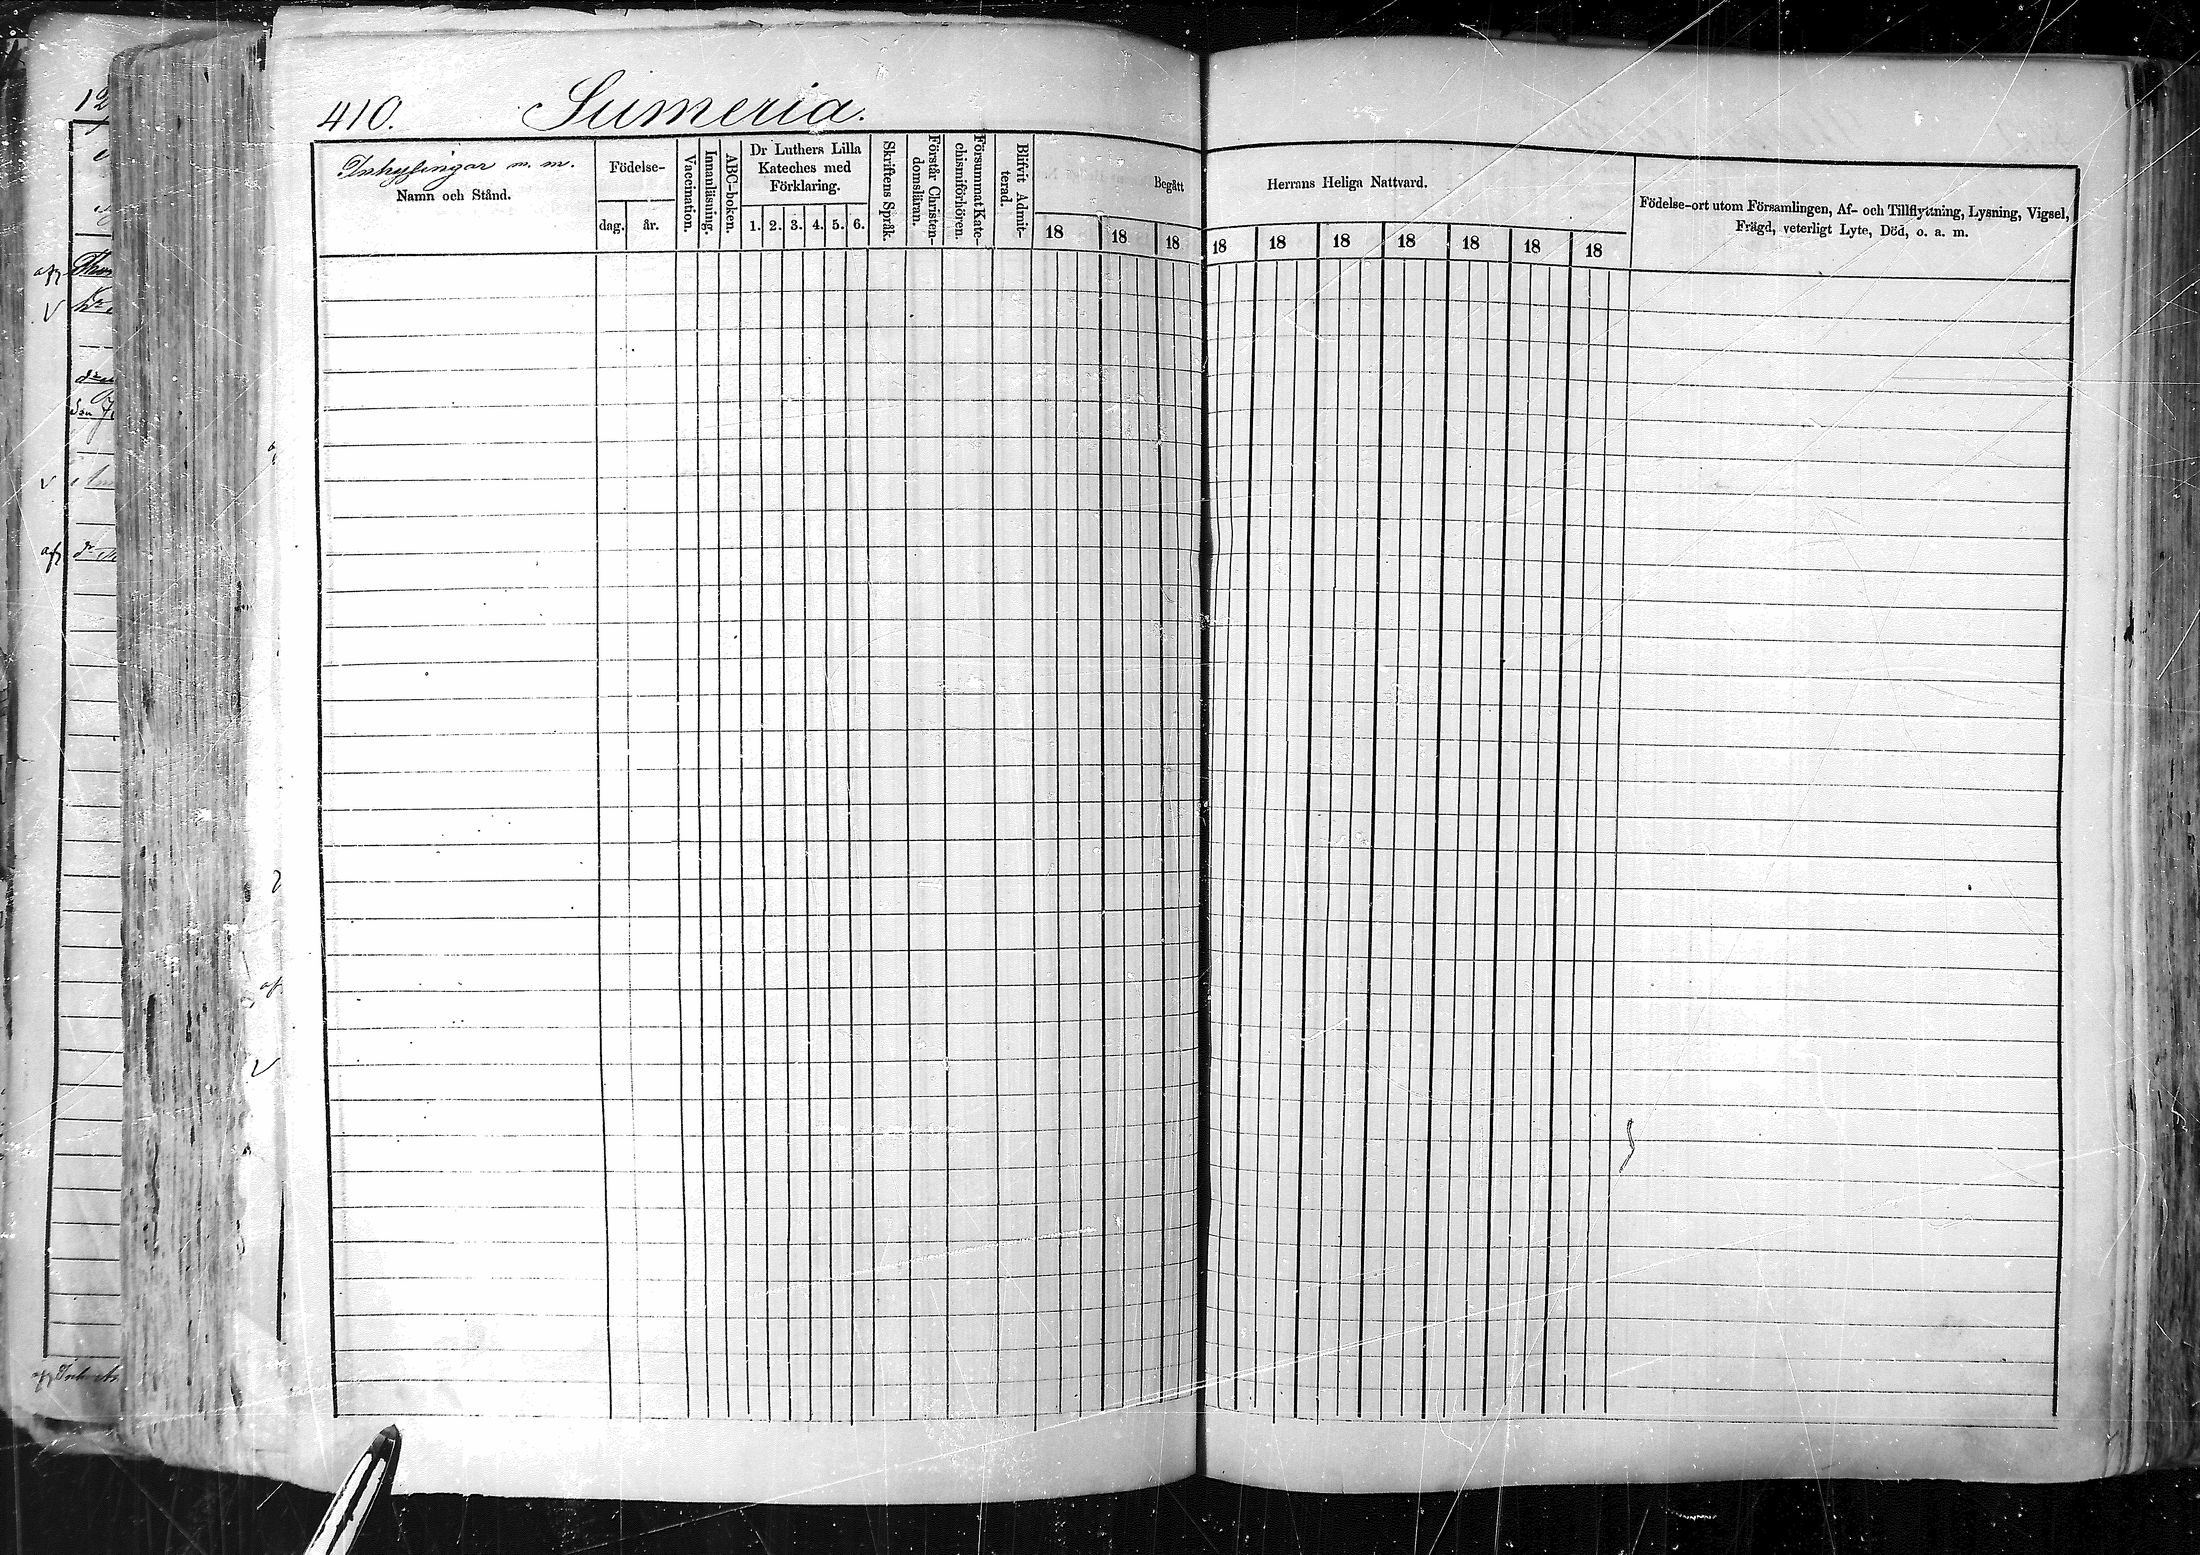 410. Sumeria.
Inhysingar m. m.
Namn och Stånd.
Födelse-
dag. år.
Vaccination.
Innanläsning.
ABC-boken.
Dr Luthers Lilla
Kateches med
Förklaring.
1. 2. 3. 4. 5. 6.
Skriftens Språk.
Förstår Christen-
domsläran.
Försummat Kate-
chismiförhören.
Blifvit Admit-
terad.
Begått Herrans Heliga Nattvard.
18 18 18 18 18 18 18 18 18 18
Födelse-ort utom Församlingen, Af- och Tillflyttning, Lysning, Vigsel,
Frägd, veterligt Lyte, Död, o. a. m.